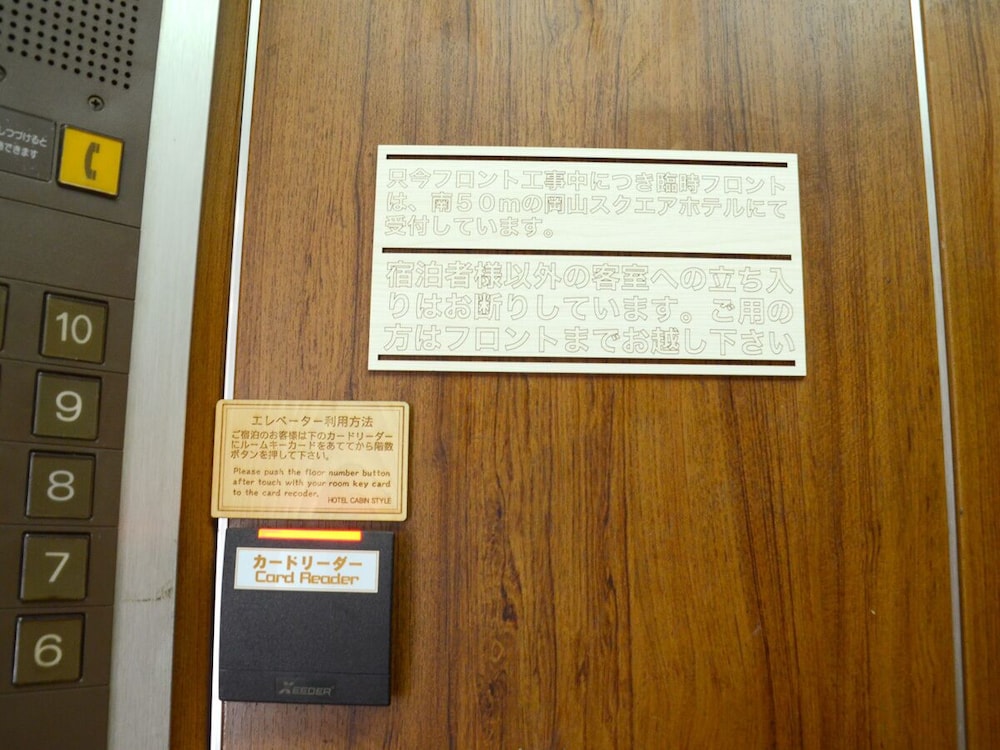 しつづけると
できます
10
9
8
7
6
只今フロント工事中につき臨時フロント
は、南50mの岡山スクエアホテルにて
受付しています。
宿泊者様以外の客室への立ち入
りはお断りしています。ご用の
方はフロントまでお越し下さい
エレベーター利用方法
ご宿泊のお客様は下のカードリーダー
にルームキーカードをあててから階数
ボタンを押して下さい。
Please push the floor number button
after touch with your room key card
to the card recoder.
HOTEL CABIN STYLE
カードリーダー
Card Reader
XEEDER